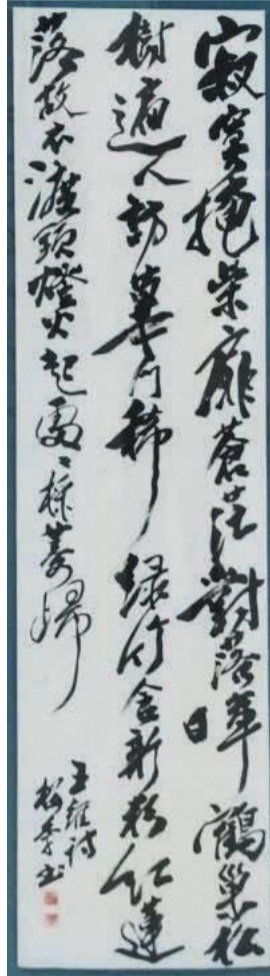 寂寞掩柴扉蒼茫對落暉鶴巢松
樹遍人訪蓽門稀綠竹含新粉紅蓮
落故衣渡頭燈火起處々採菱歸
王維詩
松 書